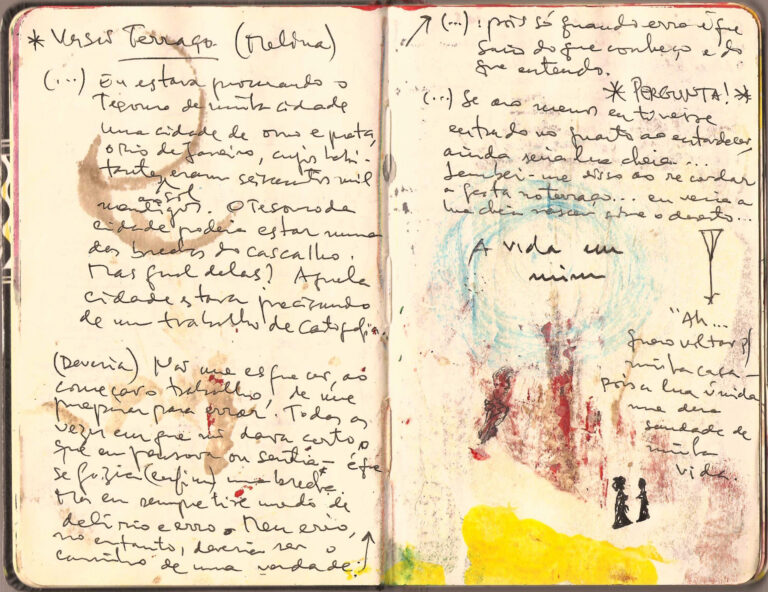 * Versão Terraço (Melina)
(...) Eu estava procurando o
tesouro de minha cidade
uma cidade de ouro e pedra,
o Rio de Janeiro, cujos habi-
tantes ao sol eram seiscentos mil
mendigos. O tesouro da
cidade poderia estar numa
das brechas do cascalho.
Mas qual delas? Aquela
cidade estava precisando
de um trabalho de cartografia.
(Deveria) Não me esquecer, ao
começar o trabalho, de me
preparar para errar. Todas as
vezes em que não dava certo o
que eu pensava ou sentia – é que
se fazia (enfim) uma brecha
Mas eu sempre tive medo de
delírio e erro. Meu erro,
no entanto, deveria ser o
caminho de uma verdade:
(...) : pois só quando erro é que
saio do que conheço e do
que entendo.
* PERGUNTA! *
(...) Se ao menos eu tivesse
entrado no quarto ao entardecer,
ainda seria lua cheia...
Lembrei-me disso ao recordar
a festa no terraço... eu veria a
lua cheia nascer sobre o deserto...
A vida em
mim
"Ah...
quero voltar p/
minha casa –
pois a lua úmida
me dera
saudade de
minha
vida.